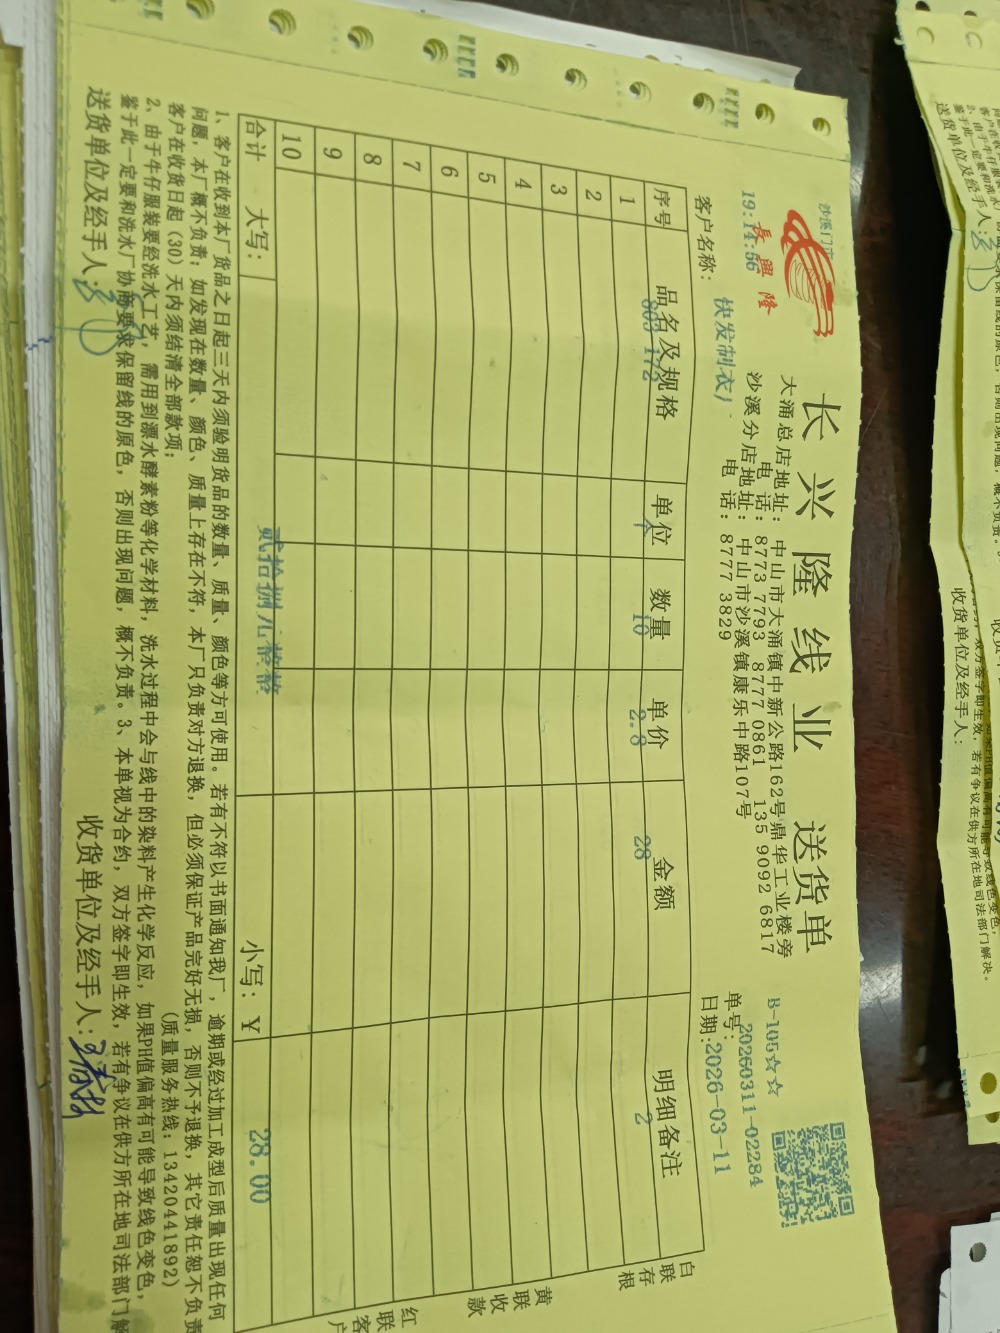 沙溪门市
長興隆
19:14:56
长兴隆线业 送货单
大涌总店地址：中山市大涌镇中新公路162号鼎华工业楼旁
电 话：8773 7793 8777 0861 135 9092 6817
沙溪分店地址：中山市沙溪镇康乐中路107号
电 话：8777 3829
B-105☆☆
单号：20260311-02284
日期：2026-03-11
客户名称： 快发制衣厂
序号 品名及规格 单位 数量 单价 金额 明细备注
1 803-172 个 10 2.8 28 2
2
3
4
5
6
7
8
9
10
合计 大写： 贰拾捌元整 小写：￥ 28.00
白联存根
黄联收款
红联客户
1、客户在收到本厂货品之日起三天内须验明货品的数量、质量、颜色等方可使用。若有不符以书面通知我厂，逾期或经过加工成型后质量出现任何
问题，本厂概不负责；如发现在数量、颜色、质量上存在不符，本厂只负责对方退换，但必须保证产品完好无损，否则不予退换，其它责任恕不负责
客户在收货日起（30）天内须结清全部款项； （质量服务热线：13420441892）
2、由于牛仔服装要经洗水工艺，需用到漂水酵素粉等化学材料，洗水过程中会与线中的染料产生化学反应，如果PH值偏高有可能导致线色变色，
鉴于此一定要和洗水厂协商要求保留线的原色，否则出现问题，概不负责。3、本单视为合约，双方签字即生效，若有争议在供方所在地司法部门解
送货单位及经手人： 收货单位及经手人：
送货单位及经手人：
收货单位及经手人：
双方签字即生效，若有争议在供方所在地司法部门解决。